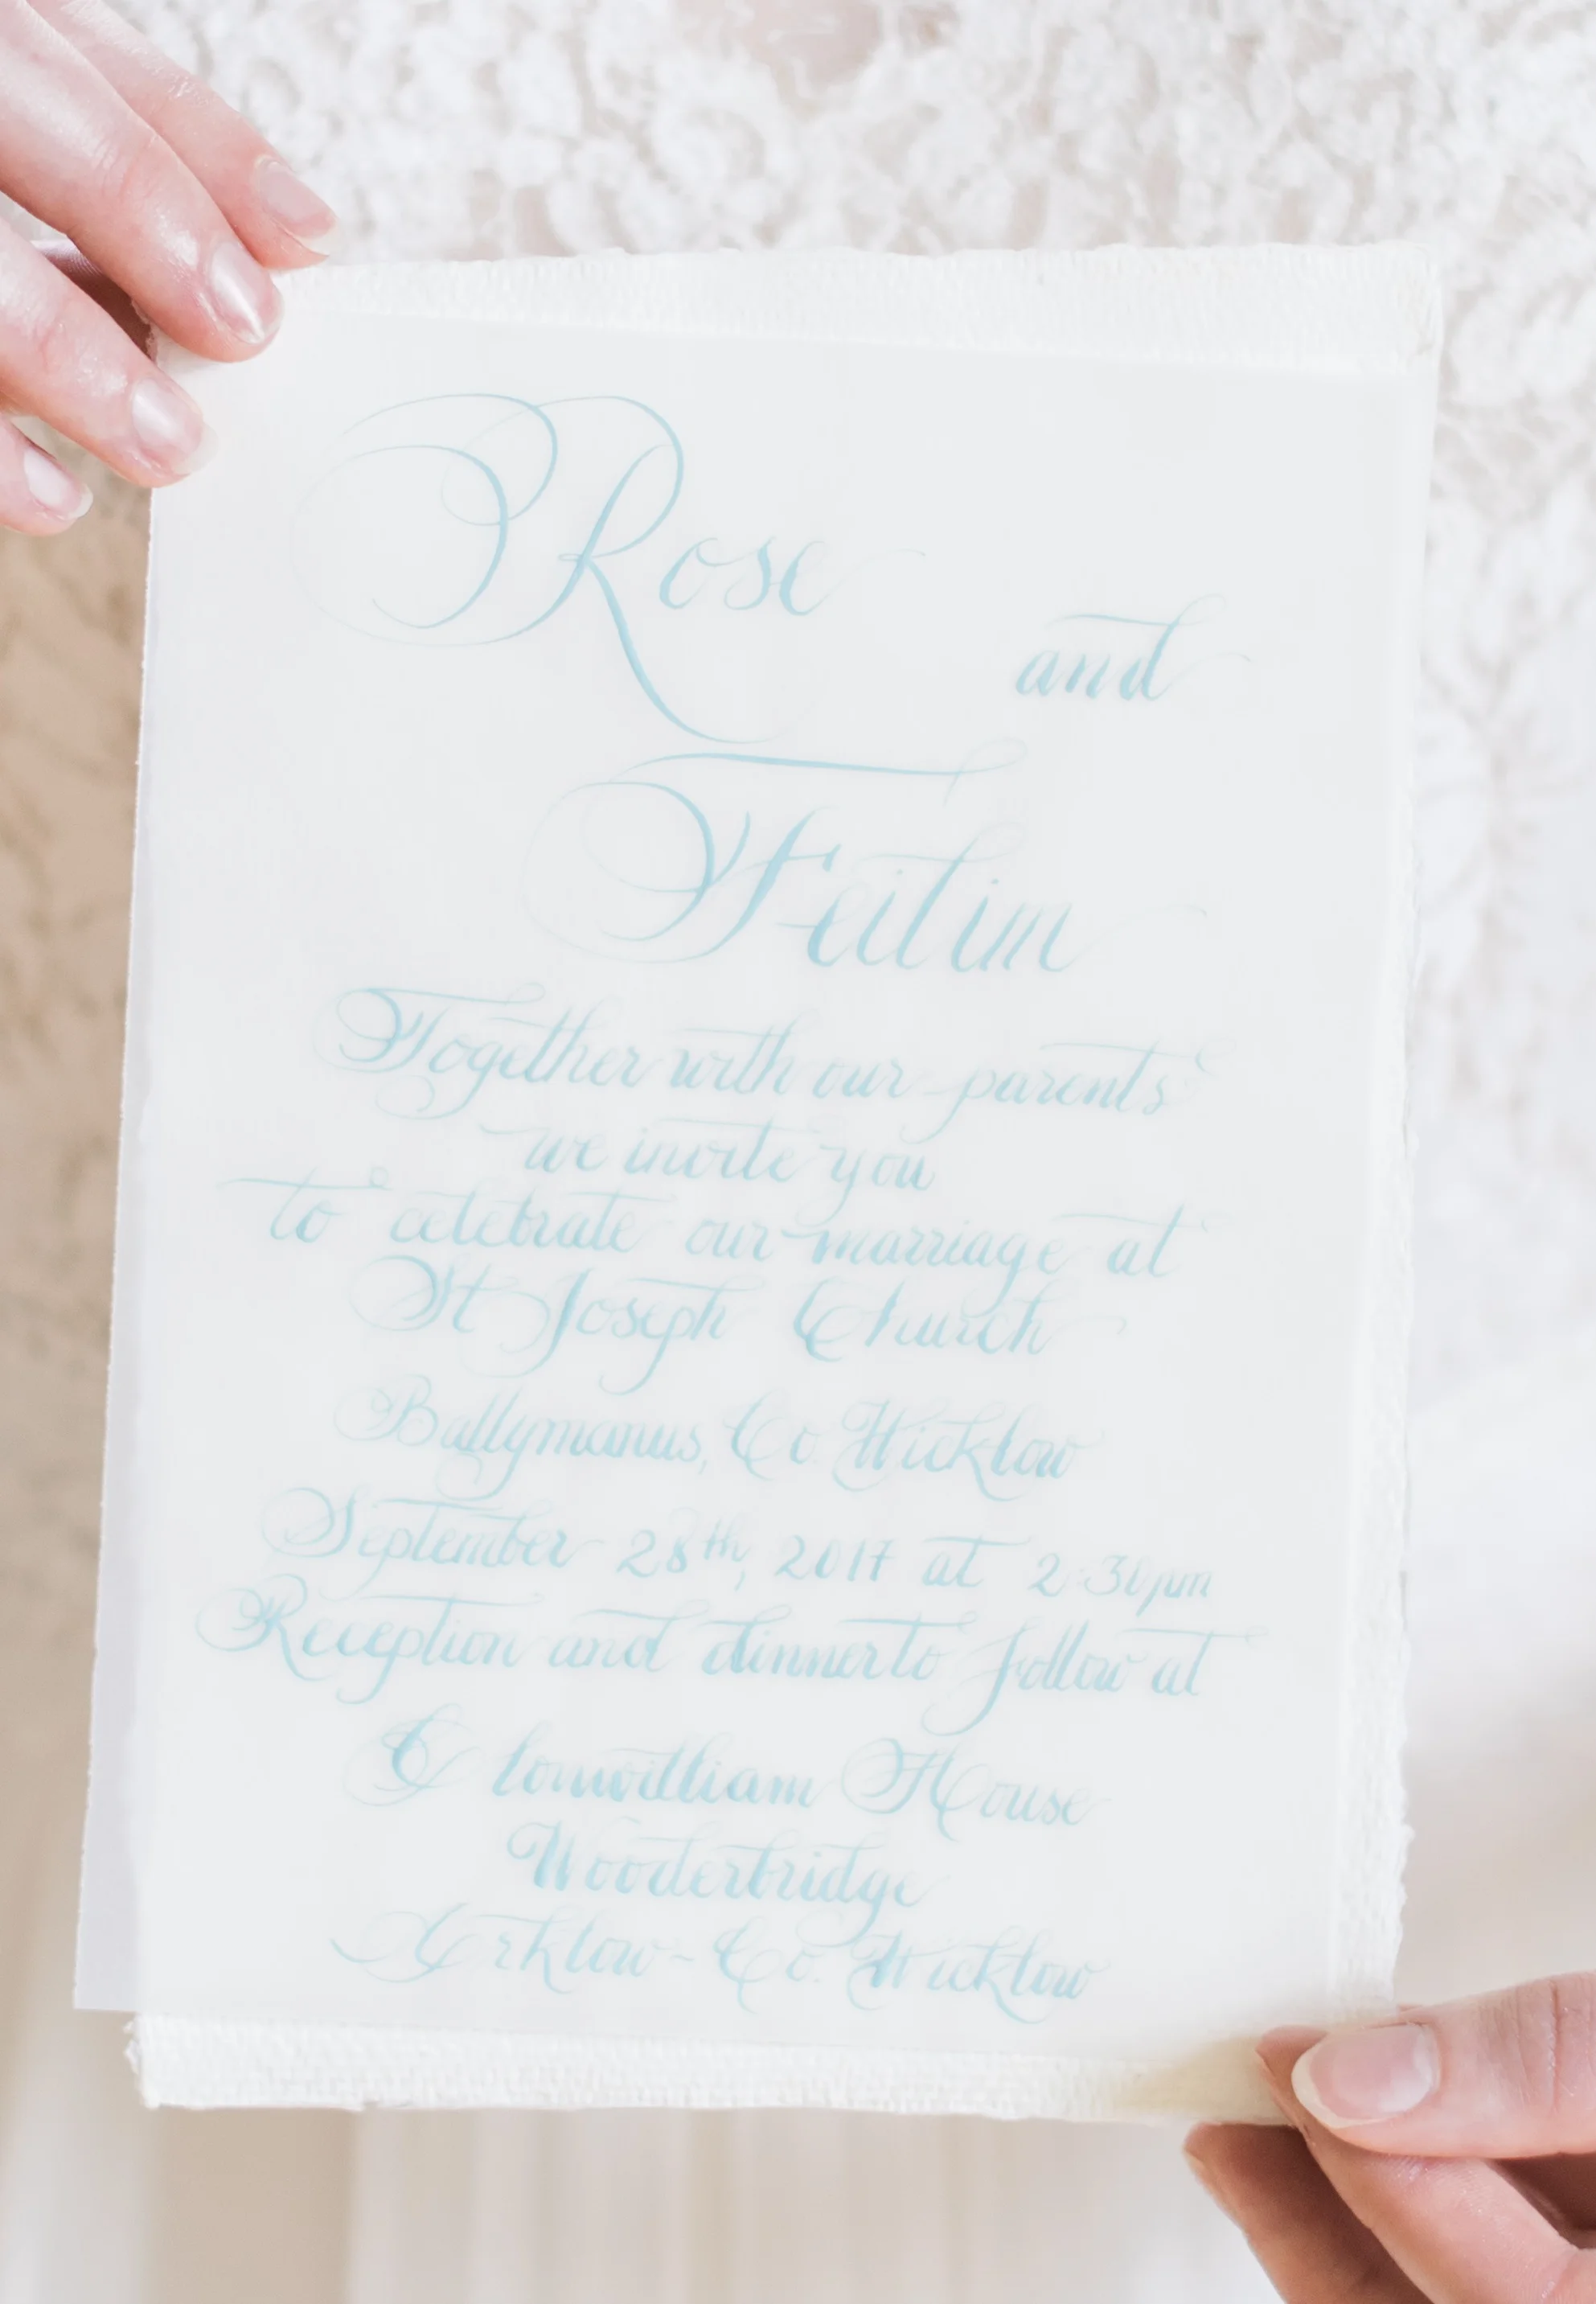 Rose
and
Feilim
Together with our parents
we invite you
to celebrate our marriage at
St Joseph Church
Ballymanus, Co Wicklow
September 28th, 2017 at 2:30pm
Reception and dinner to follow at
Clonwilliam House
Wooderbridge
Arklow - Co. Wicklow